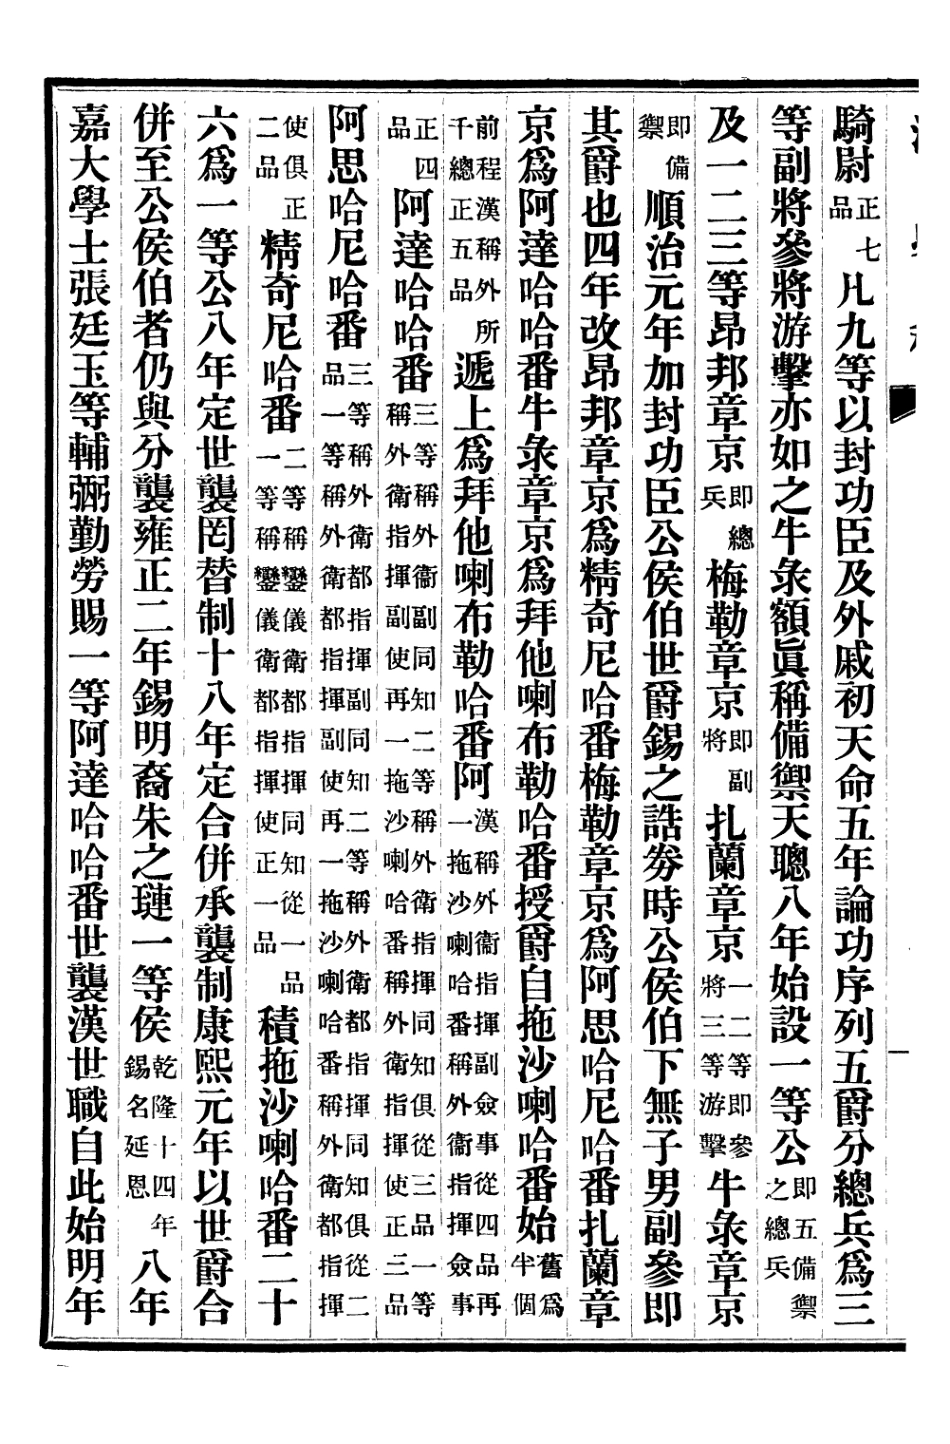 騎尉正七品凡九等以封功臣及外戚初天命五年論功序列五爵分總兵爲三
等副將參將游擊亦如之牛彔額眞稱備禦天聰八年始設一等公即五備禦之總兵
及一二三等昂邦章京即總兵梅勒章京即副將扎蘭章京一二等即參將三等游擊牛彔章京
即備禦順治元年加封功臣公侯伯世爵錫之誥券時公侯伯下無子男副參即
其爵也四年改昂邦章京爲精奇尼哈番梅勒章京爲阿思哈尼哈番扎蘭章
京爲阿達哈哈番牛彔章京爲拜他喇布勒哈番授爵自拖沙喇哈番始舊爲半個
前程漢稱外所千總正五品遞上爲拜他喇布勒哈番阿漢稱外衞指揮副僉事從四品再一拖沙喇哈番稱外衞指揮僉事
正四品阿達哈哈番三等稱外衞副同知二等稱外衞指揮同知俱從三品一等稱外衞指揮副使再一拖沙喇哈番稱外衞指揮使正三品
阿思哈尼哈番三等稱外衞都指揮副同知二等稱外衞都指揮同知俱從二品一等稱外衞都指揮副使再一拖沙喇哈番稱外衞都指揮
使俱正二品精奇尼哈番二等稱鑾儀衞都指揮同知從一品一等稱鑾儀衞都指揮使正一品積拖沙喇哈番二十
六爲一等公八年定世襲罔替制十八年定合併承襲制康熙元年以世爵合
併至公侯伯者仍與分襲雍正二年錫明裔朱之璉一等侯乾隆十四年錫名延恩八年
嘉大學士張廷玉等輔弼勤勞賜一等阿達哈哈番世襲漢世職自此始明年